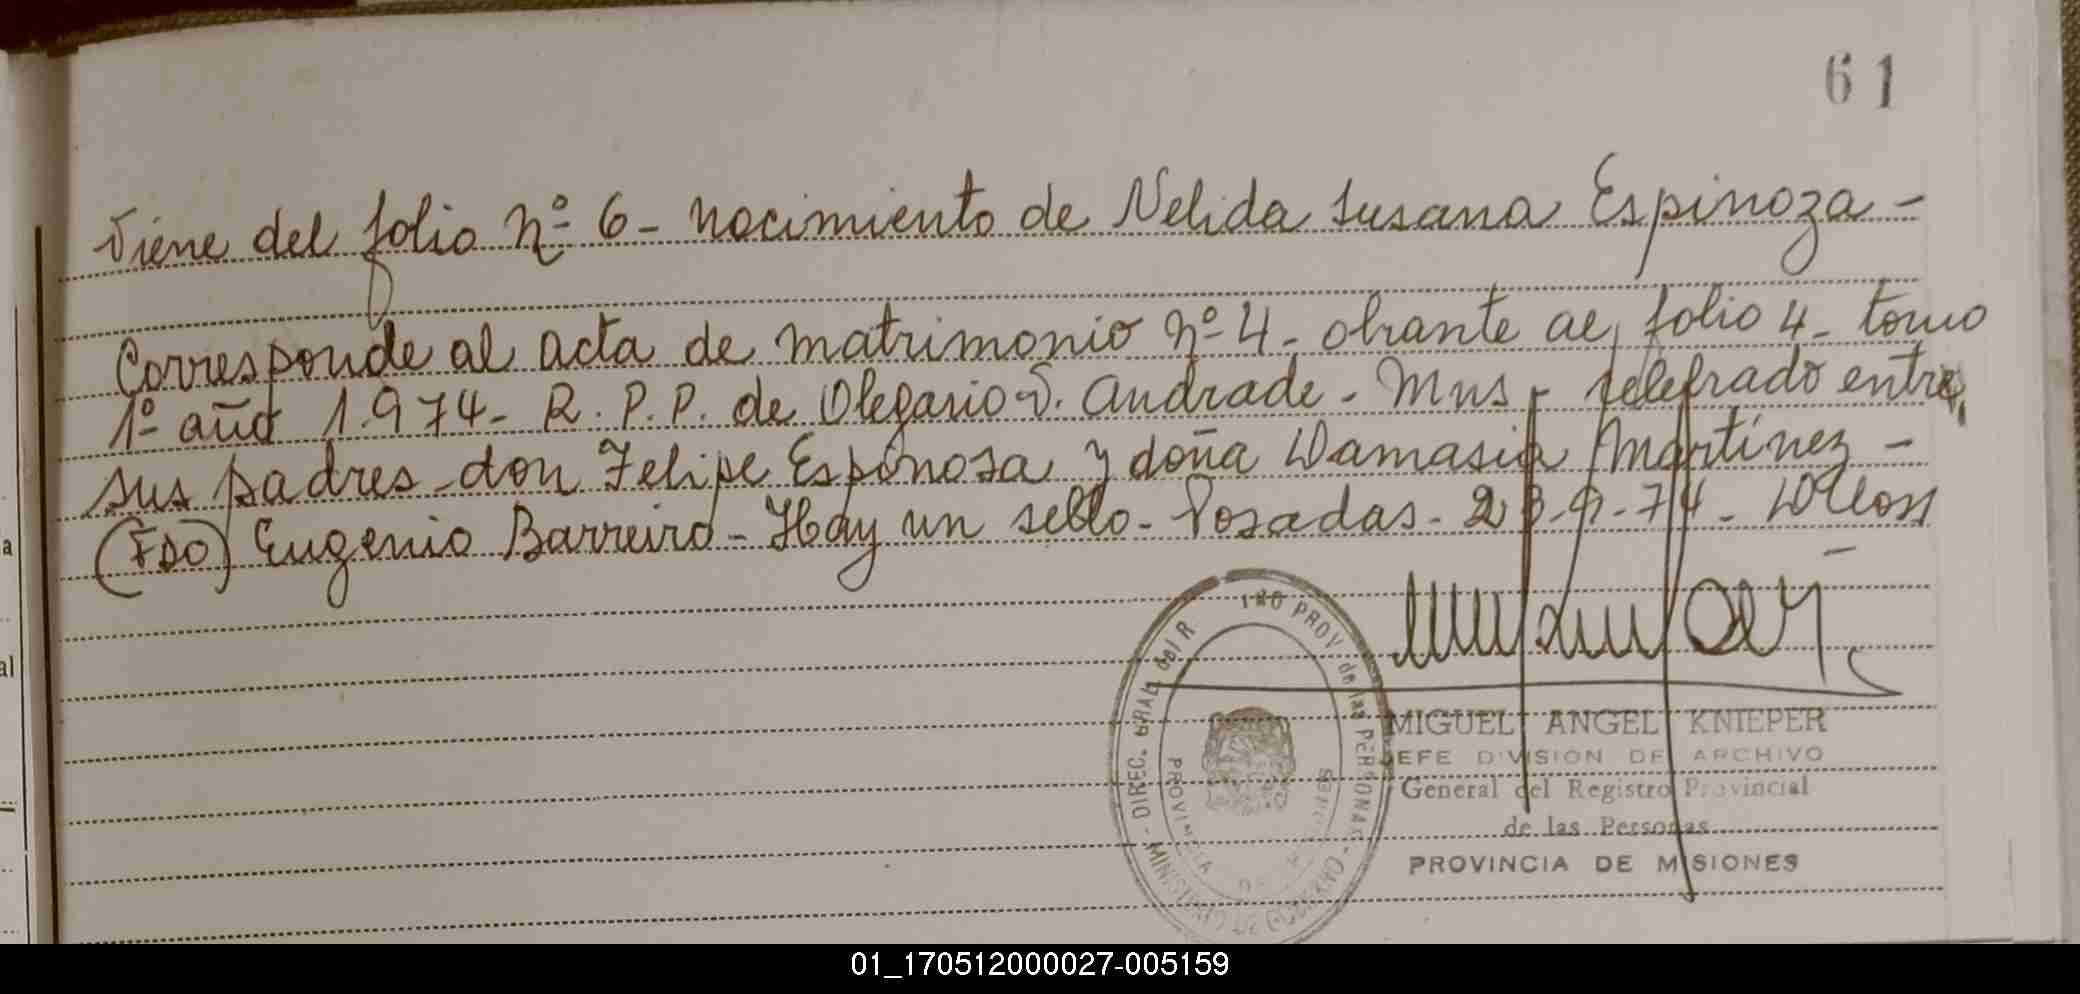 61
Viene del folio nº 6 - nacimiento de Nelida Susana Espinoza -
Corresponde al acta de matrimonio nº 4 - obrante al folio 4 - tomo
1º año 1.974 - R. P. P. de Olegario V. Andrade - Mns - celebrado entre
sus padres - don Felipe Espinosa y doña Damasia Martínez -
(FDO) Eugenio Barreiro - Hay un sello - Posadas - 23-9-74 -
DIREC. GRAL del R PROV de las PERSONAS - MINISTERIO DE GOBIERNO -
PROVINCIA DE MISIONES
MIGUEL ANGEL KNIEPER
JEFE DIVISION DE ARCHIVO
General del Registro Provincial
de las Personas
PROVINCIA DE MISIONES
a
al
01_170512000027-005159